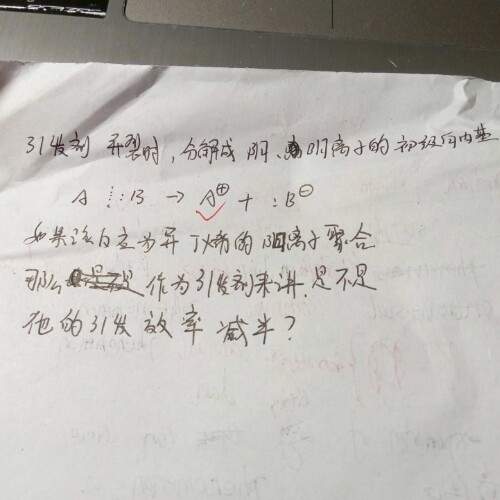 引发剂 异裂时，分解成 阴、阳离子的 初级活性
A ⁞:B → A⊕ + :B⊖
如果该反应为异丁烯的阳离子聚合
那么 作为引发剂来讲，是不是
他的引发效率减半？